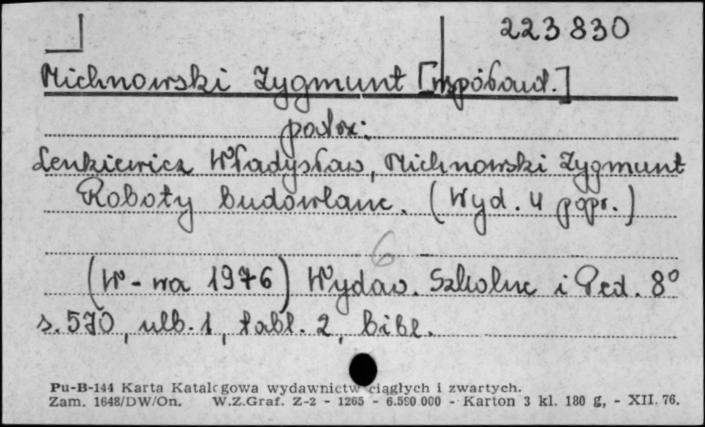 223830
Michnowski Zygmunt [współaut.]
patrz:
Lenkiewicz Władysław, Michnowski Zygmunt
Roboty budowlane. (Wyd. 4 popr.)
6
(W-wa 1976) Wydaw. Szkolne i Ped. 8°
s. 570, nlb. 1, tabl. 2, bibl.
Pu-B-144 Karta Katalogowa wydawnictw ciągłych i zwartych.
Zam. 1648/DW/On. W.Z.Graf. Z-2 - 1265 - 6.590 000 - Karton 3 kl. 180 g, - XII. 76.